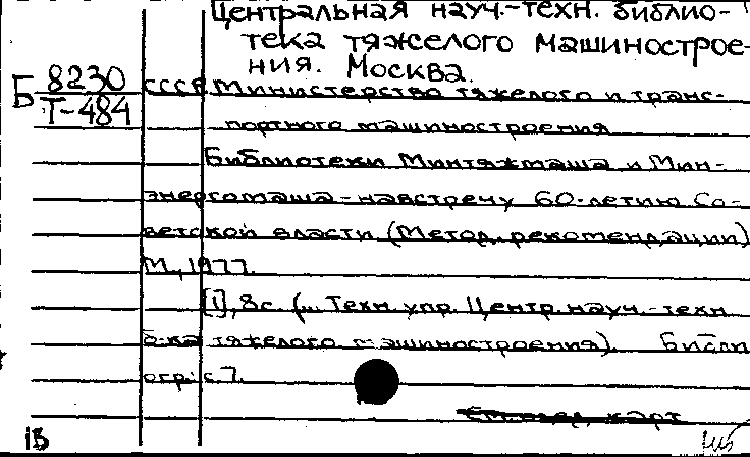 Центральная науч.-техн. библио-
тека тяжелого машинострое-
ния. Москва.
Б 8230
Т-484
СССР Министерство тяжелого и транс-
портного машиностроения
Библиотеки Минтяжмаша и Мин-
энергомаша - навстречу 60-летию Со-
ветской власти (Метод. рекомендации)
М., 1977.
[1], 8с. (... Техн. упр. Центр. науч.-техн.
б-ка тяжелого машиностроения). Библи
огр: с 7.
карт
13